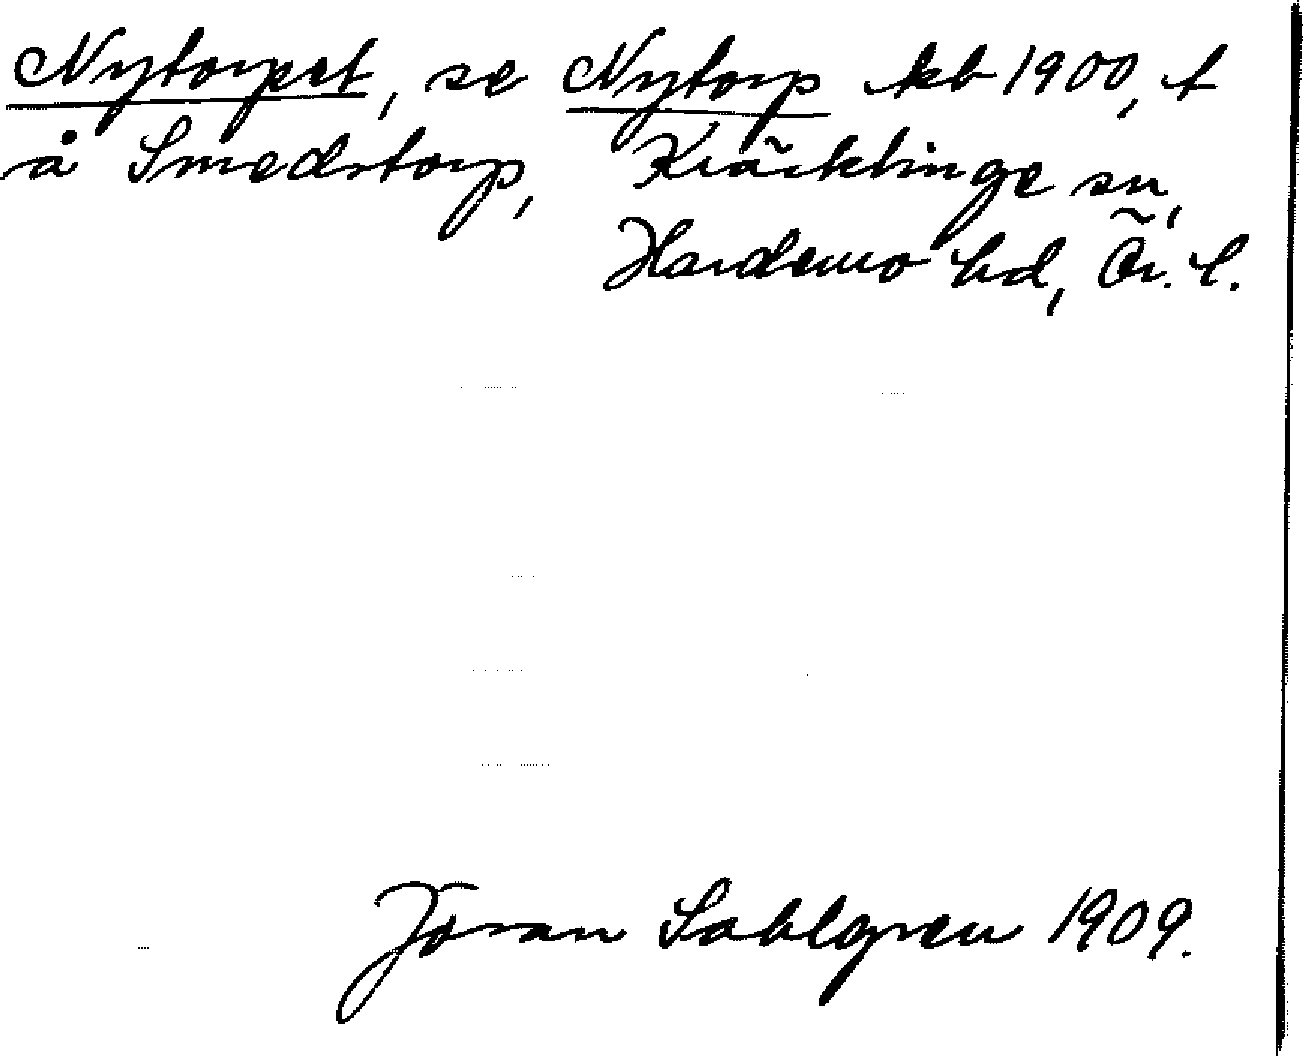 Nytorpet, se Nytorp kb 1900, t
å Smedstorp, Kräcklinge sn,
Hardemo hd, Ör. l.
Jöran Sahlgren 1909.